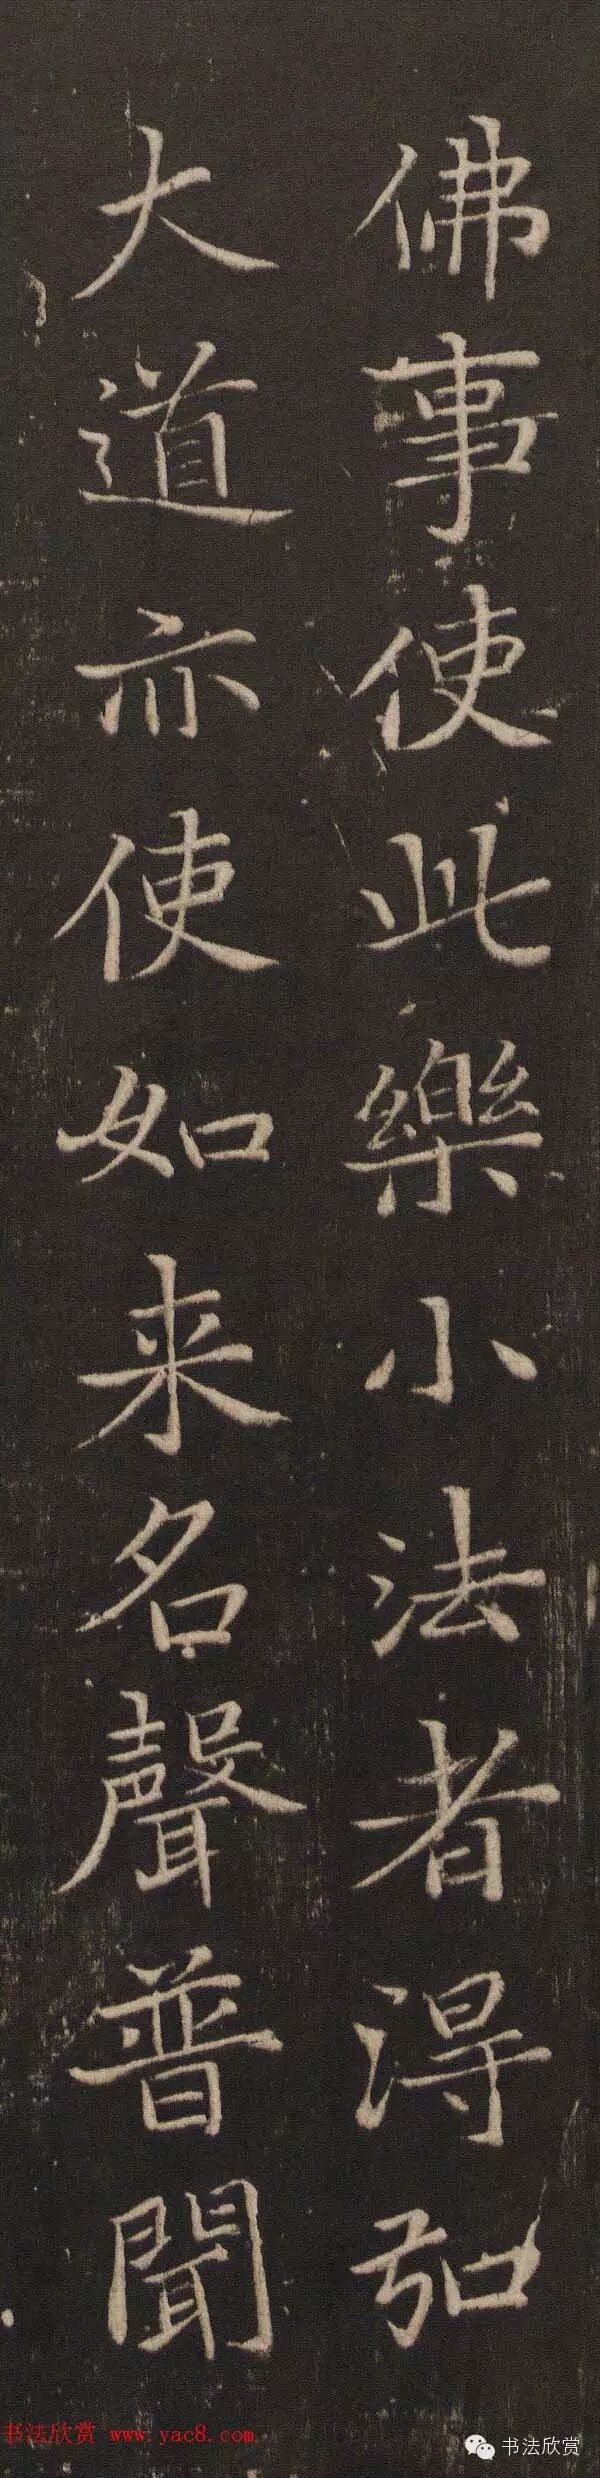 佛事使此樂小法者得弘
大道亦使如来名聲普聞
书法欣赏 www.yac8.com
书法欣赏